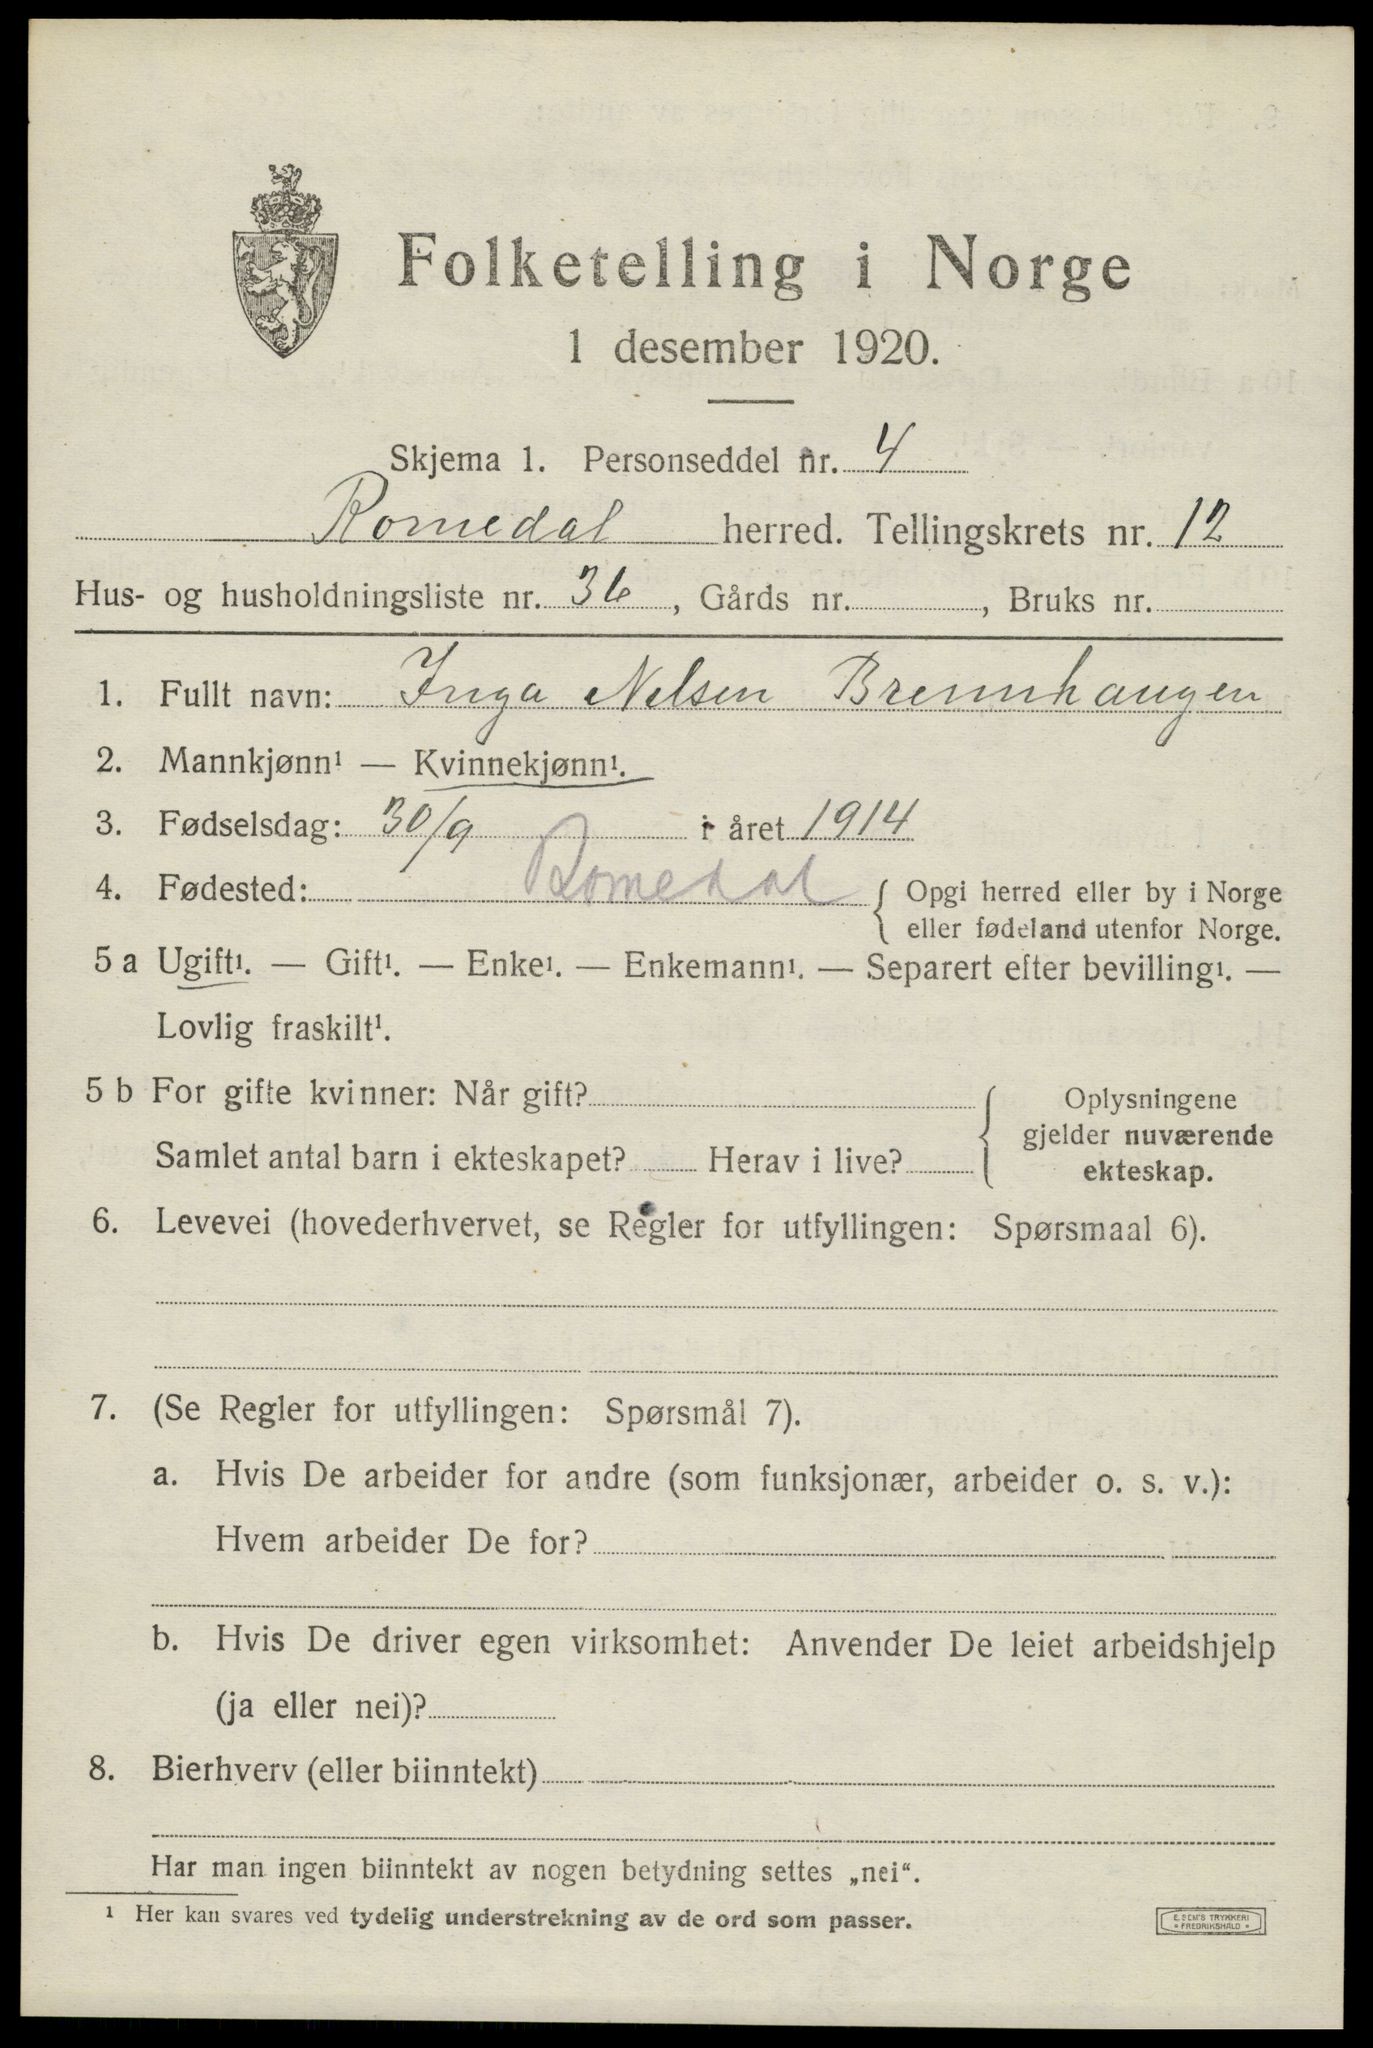 Folketelling i Norge
1 desember 1920.
Skjema 1. Personseddel nr. 4
Romedal herred. Tellingskrets nr. 12
Hus- og husholdningsliste nr. 36, Gårds nr. , Bruks nr.
1. Fullt navn: Inga Nelsen Brennhaugen
2. Mannkjønn¹ — Kvinnekjønn¹.
3. Fødselsdag: 30/9 i året 1914
4. Fødested: Romedal { Opgi herred eller by i Norge
eller fødeland utenfor Norge.
5 a Ugift¹. — Gift¹. — Enke¹. — Enkemann¹. — Separert efter bevilling¹. —
Lovlig fraskilt¹.
5 b For gifte kvinner: Når gift? { Oplysningene
gjelder nuværende
Samlet antal barn i ekteskapet? Herav i live? ekteskap.
6. Levevei (hovederhvervet, se Regler for utfyllingen: Spørsmaal 6).
7. (Se Regler for utfyllingen: Spørsmål 7).
a. Hvis De arbeider for andre (som funksjonær, arbeider o. s. v.):
Hvem arbeider De for?
b. Hvis De driver egen virksomhet: Anvender De leiet arbeidshjelp
(ja eller nei)?
8. Bierhverv (eller biinntekt)
Har man ingen biinntekt av nogen betydning settes „nei“.
¹ Her kan svares ved tydelig understrekning av de ord som passer.
E. SEM'S TRYKKERI
• FREDRIKSHALD •